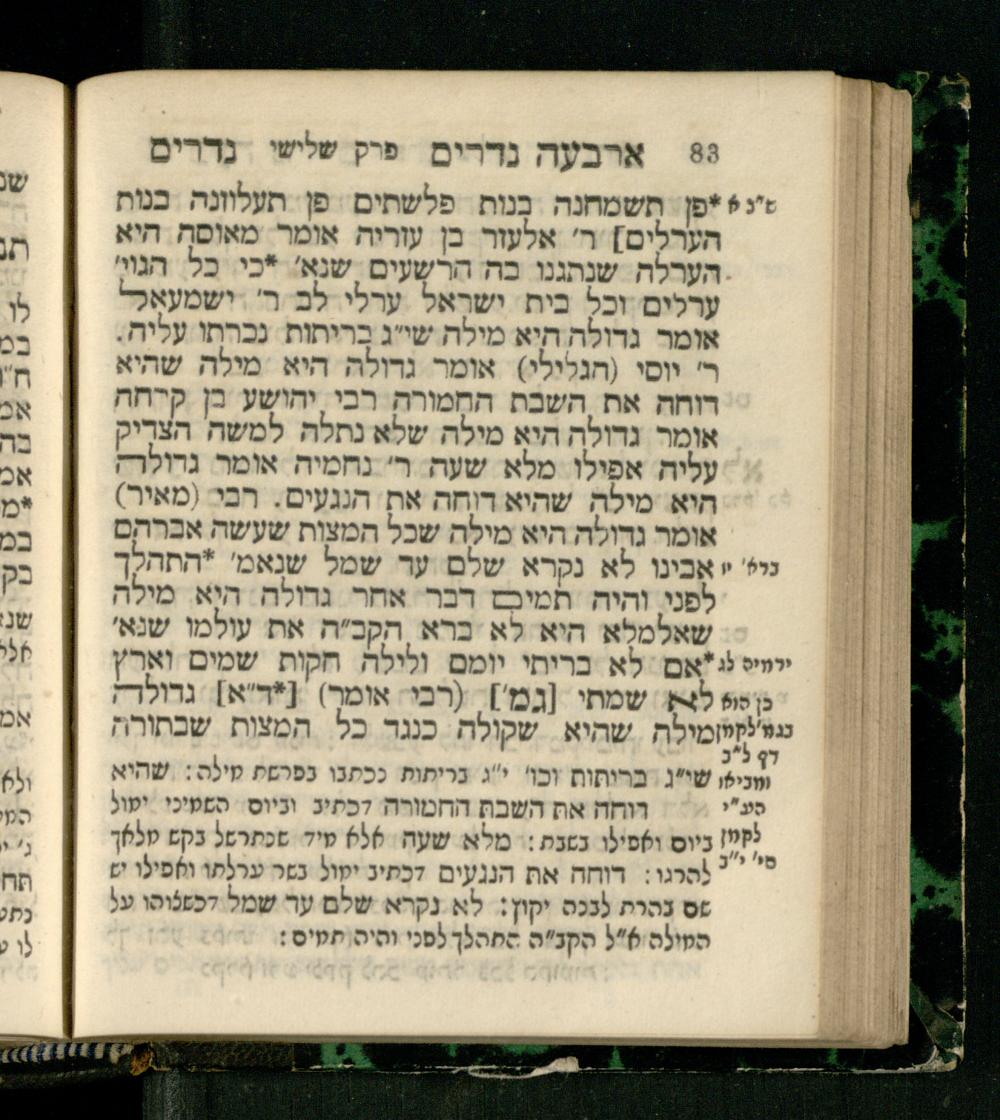 83 ארבעה נדרים פרק שלישי נדרים
ש״ב א *פן תשמחנה בנות פלשתים פן תעלוזנה בנות
הערלים] ר׳ אלעזר בן עזריה אומר מאוסה היא
הערלה שנתגנו בה הרשעים שנא׳ *כי כל הגוי׳
ערלים וכל בית ישראל ערלי לב ר׳ ישמעאל
אומר גדולה היא מילה שי״ג בריתות נכרתו עליה.
ר׳ יוסי (הגלילי) אומר גדולה היא מילה שהיא
דוחה את השבת החמורה רבי יהושע בן קרחה
אומר גדולה היא מילה שלא נתלה למשה הצדיק
עליה אפילו מלא שעה ר׳ נחמיה אומר גדולה
היא מילה שהיא דוחה את הנגעים. רבי (מאיר)
אומר גדולה היא מילה שכל המצות שעשה אברהם
ברא׳ יז אבינו לא נקרא שלם עד שמל שנאמ׳ *התהלך
לפני והיה תמים דבר אחר גדולה היא מילה
שאלמלא היא לא ברא הקב״ה את עולמו שנא׳
ירמיה לג *אם לא בריתי יומם ולילה חקות שמים וארץ
כן הוא לא שמתי [גמ׳] (רבי אומר) [*ד״א] גדולה
בגמ׳ לקמן מילה שהיא שקולה כנגד כל המצות שבתורה
דף ל״ב
ומביאו שי״ג בריתות וכו׳ י״ג בריתות נכתבו בפרשת מילה: שהיא
הע״י דוחה את השבת החמורה דכתיב וביום השמיני ימול
לקמן ביום ואפילו בשבת: מלא שעה אלא מיד שנתרשל בקש מלאך
סי׳ י״ב להרגו: דוחה את הנגעים דכתיב ימול בשר ערלתו ואפילו יש
שם בהרת לבנה יקוץ: לא נקרא שלם עד שמל דכשצוהו על
המילה א״ל הקב״ה התהלך לפני והיה תמים: